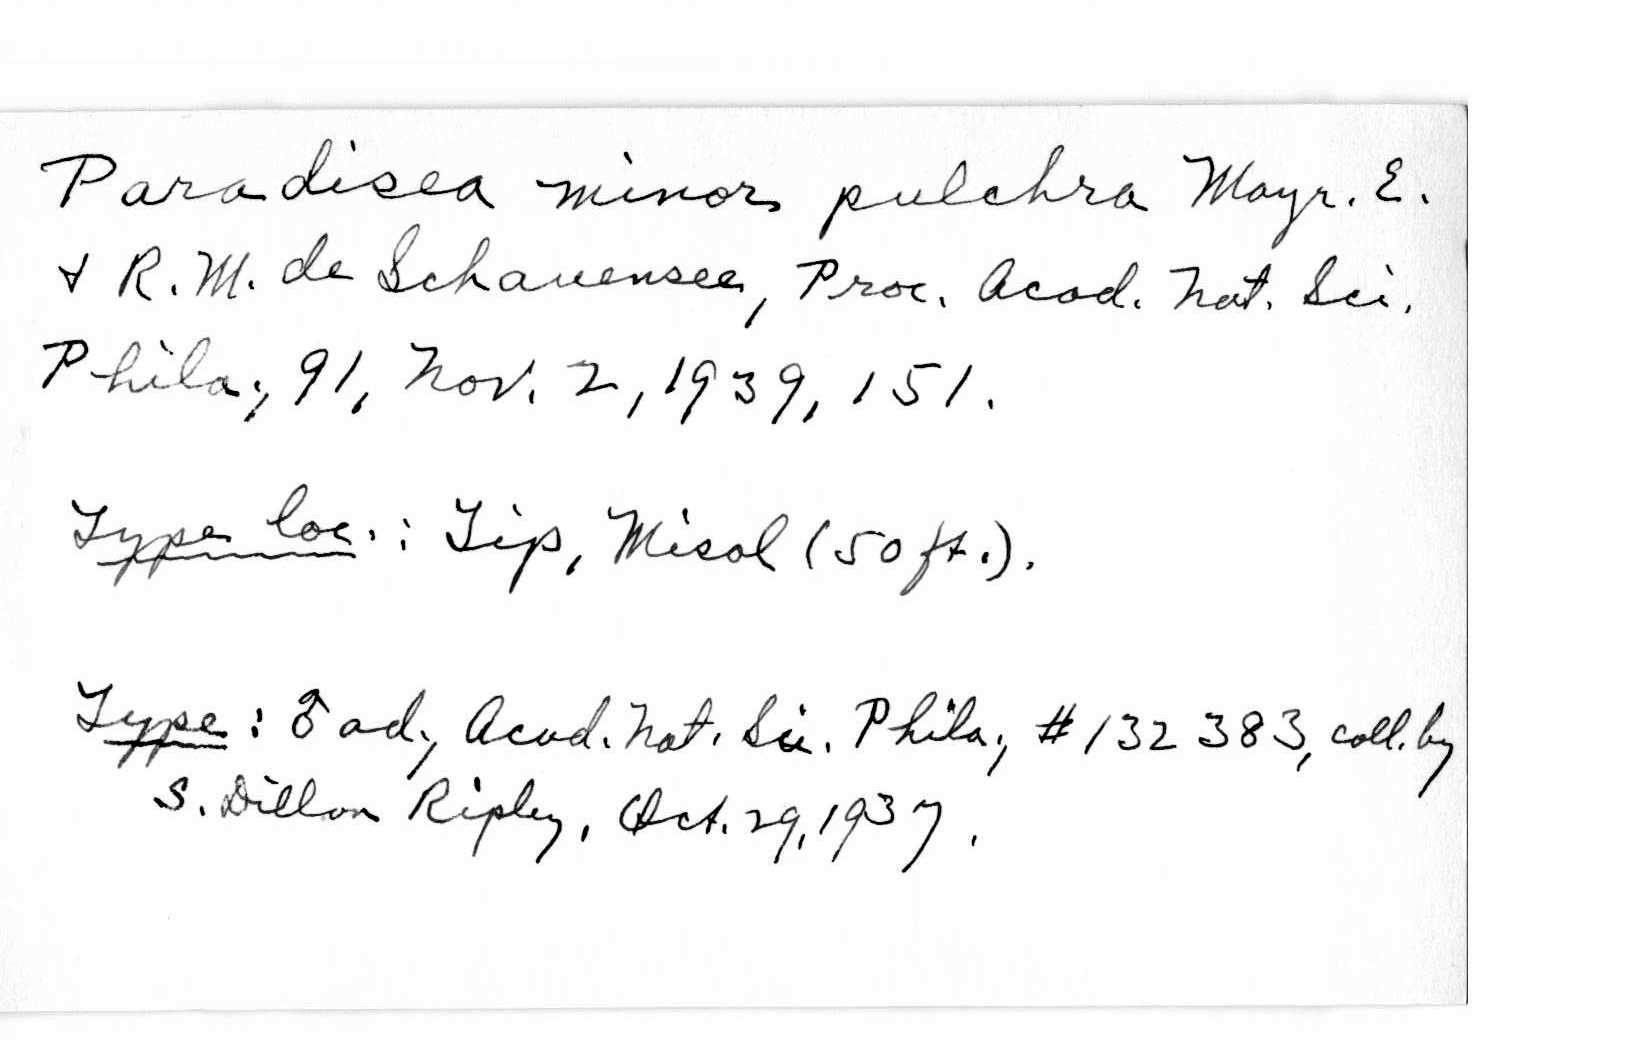 Paradisea minor pulchra Mayr. E.
& R. M. de Schauensee, Proc. Acad. Nat. Sci.
Phila., 91, Nov. 2, 1939, 151.
Type loc.: Tip, Misol (50 ft.).
Type: ♂ ad., Acad. Nat. Sci. Phila., #132383, coll. by
S. Dillon Ripley, Oct. 29, 1937.